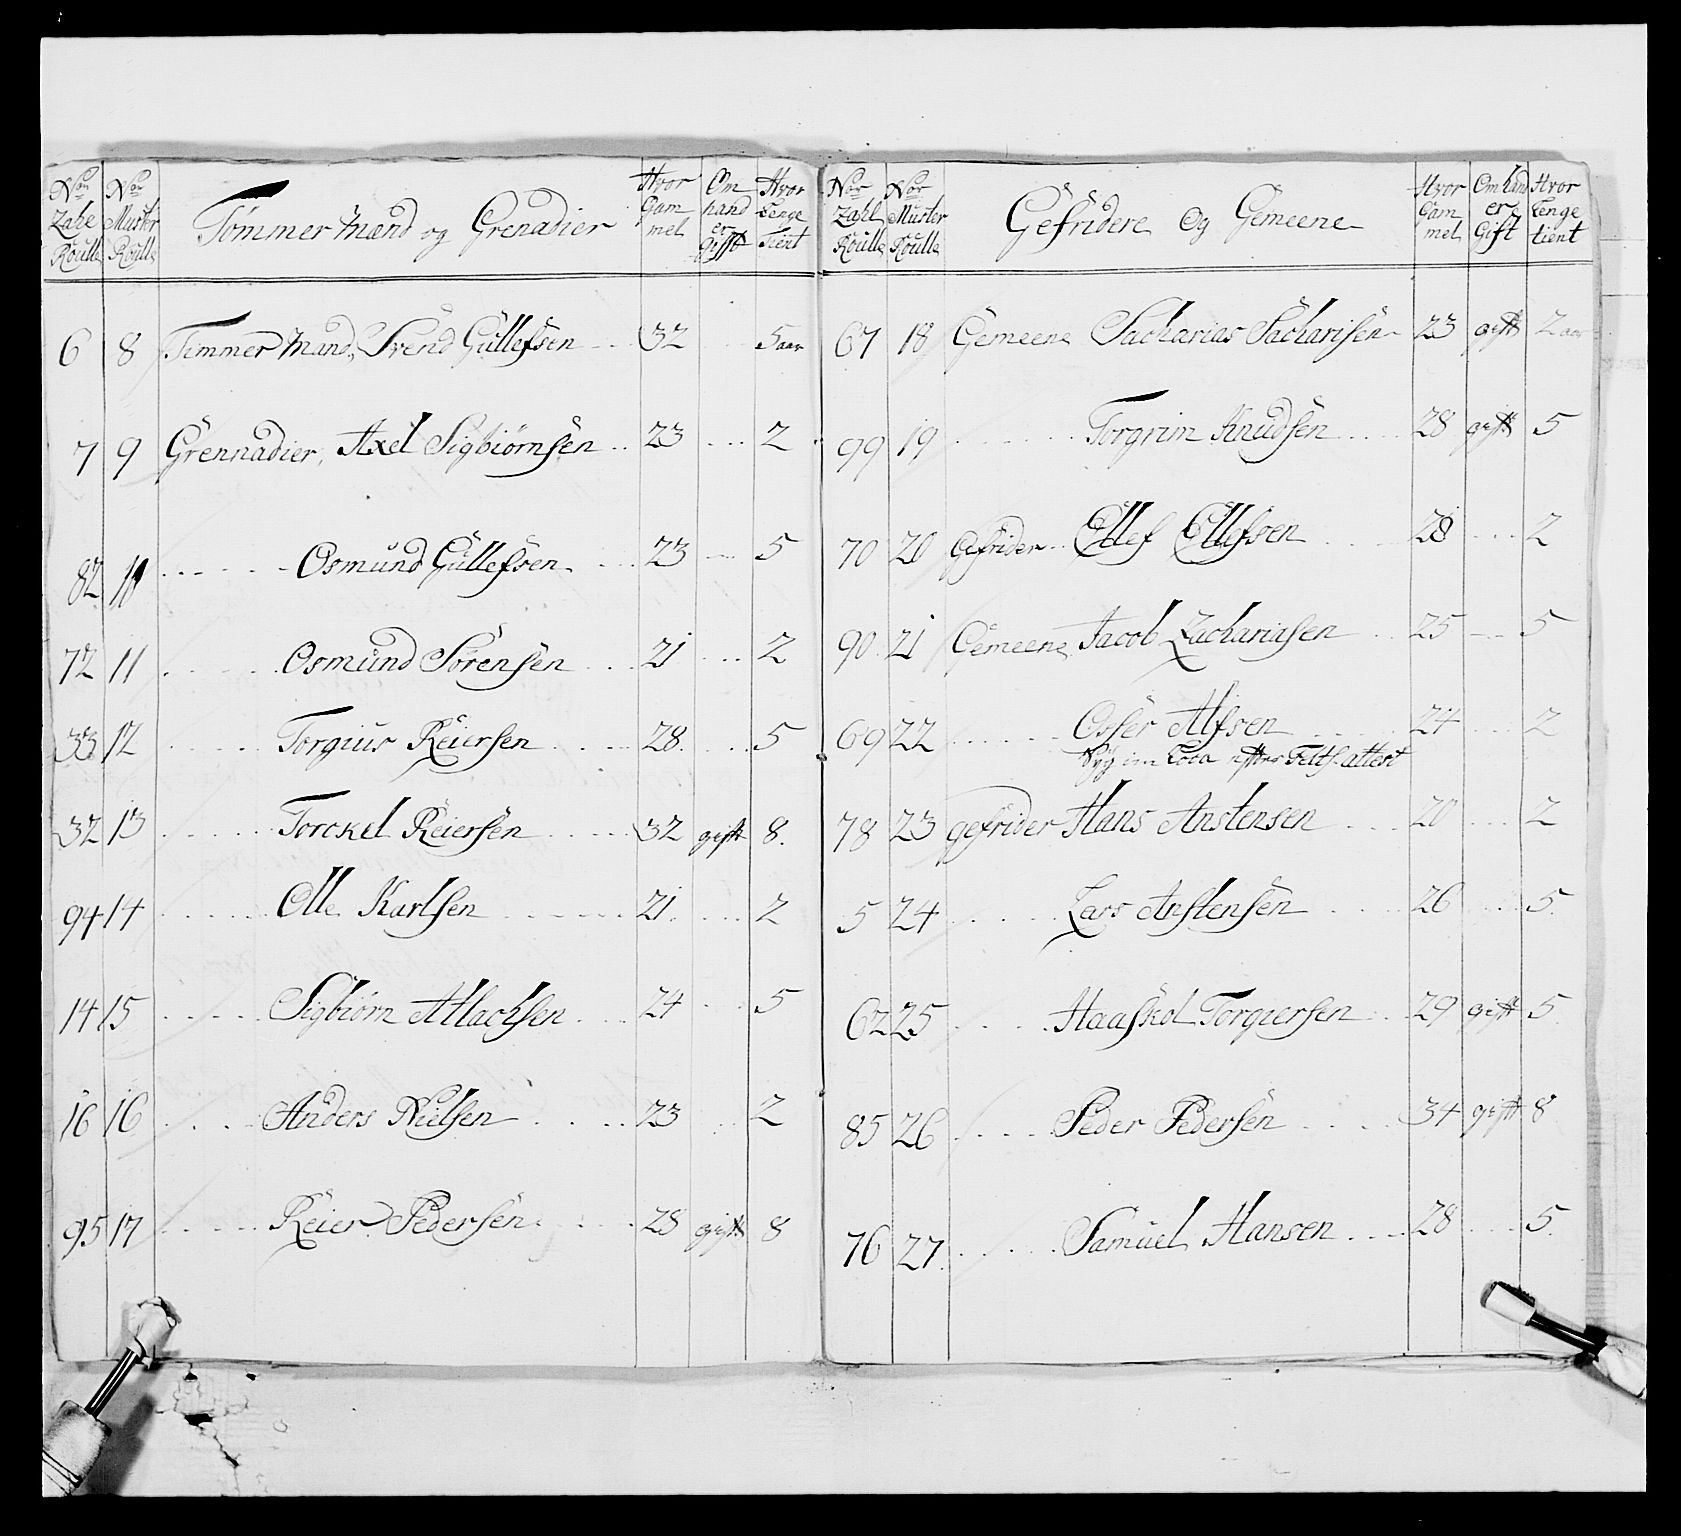 No Zahe Roulle | No Muster Roulle | Tømmer Mænd og Grenadier | Hvor Gammel | Om hand er gifft | Hvor Lenge Tient
6 8 Timmer Mand, Svend Gullefsen 32 5 aar
7 9 Grennadier, Axel Sigbiørnsen 23 2
82 10 Osmund Gullefsen 23 5
72 11 Osmund Sörensen 21 2
33 12 Torgius Reiersen 28 5
32 13 Torckel Reiersen 32 gift 8
94 14 Olle Karlsen 21 2
14 15 Sigbiørn Atlachsen 24 5
16 16 Anders Nielsen 23 2
95 17 Reier Pedersen 28 gift 8
No Zahl Roulle | No Muster Roulle | Gefridere Og Gemeene | Hvor Gammel | Om hand er Gift | Hvor Lenge tient
67 18 Gemeene Sacharias Sacharisen 23 gift 2 aar
99 19 Torgrim Knudsen 28 gift 5
70 20 Gefrider Ellef Ellefsen 28 2
90 21 Gemeene Jacob Zachariasen 25 5
69 22 Osser Alfsen 24 2
Syg im Loco efter attest
78 23 gefrider Hans Anstensen 20 2
5 24 Lars Anstensen 26 5
62 25 Haaskol Torgiersen 29 gift 5
85 26 Peder Pedersen 34 gift 8
76 27 Samuel Hansen 28 5